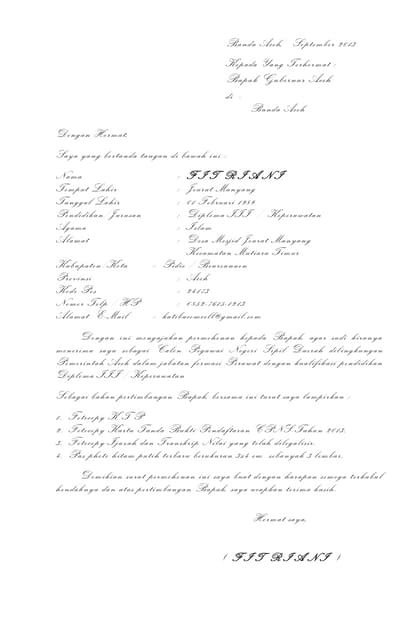 Banda Aceh   September 2013
Kepada Yang Terhormat :
Bapak Gubernur Aceh
di :
Banda Aceh
Dengan Hormat,
Saya yang bertanda tangan di bawah ini :
Nama : FITRIANI
Tempat Lahir : Jeurat Manyang
Tanggal Lahir : 01 Februari 1989
Pendidikan Jurusan : Diploma III / Keperawatan
Agama : Islam
Alamat : Desa Mesjid Jeurat Manyang
Kecamatan Mutiara Timur
Kabupaten/Kota : Pidie / Beureunuen
Provinsi : Aceh
Kode Pos : 24173
Nomor Telp / HP : 0852-7615-1213
Alamat E-Mail :
Dengan ini mengajukan permohonan kepada Bapak agar sudi kiranya
menerima saya sebagai Calon Pegawai Negeri Sipil Daerah dilingkungan
Pemerintah Aceh dalam jabatan formasi Perawat dengan kualifikasi pendidikan
Diploma III Keperawatan
Sebagai bahan pertimbangan Bapak, bersama ini turut saya lampirkan :
1. Fotocopy KTP
2. Fotocopy Kartu Tanda Bukti Pendaftaran CPNS Tahun 2013.
3. Fotocopy Ijazah dan Transkrip Nilai yang telah dilegalisir.
4. Pas photo hitam putih terbaru berukuran 3x4 cm sebanyak 3 lembar.
Demikian surat permohonan ini saya buat dengan harapan semoga terkabul
hendaknya dan atas pertimbangan Bapak, saya ucapkan terima kasih.
Hormat saya,
( FITRIANI )